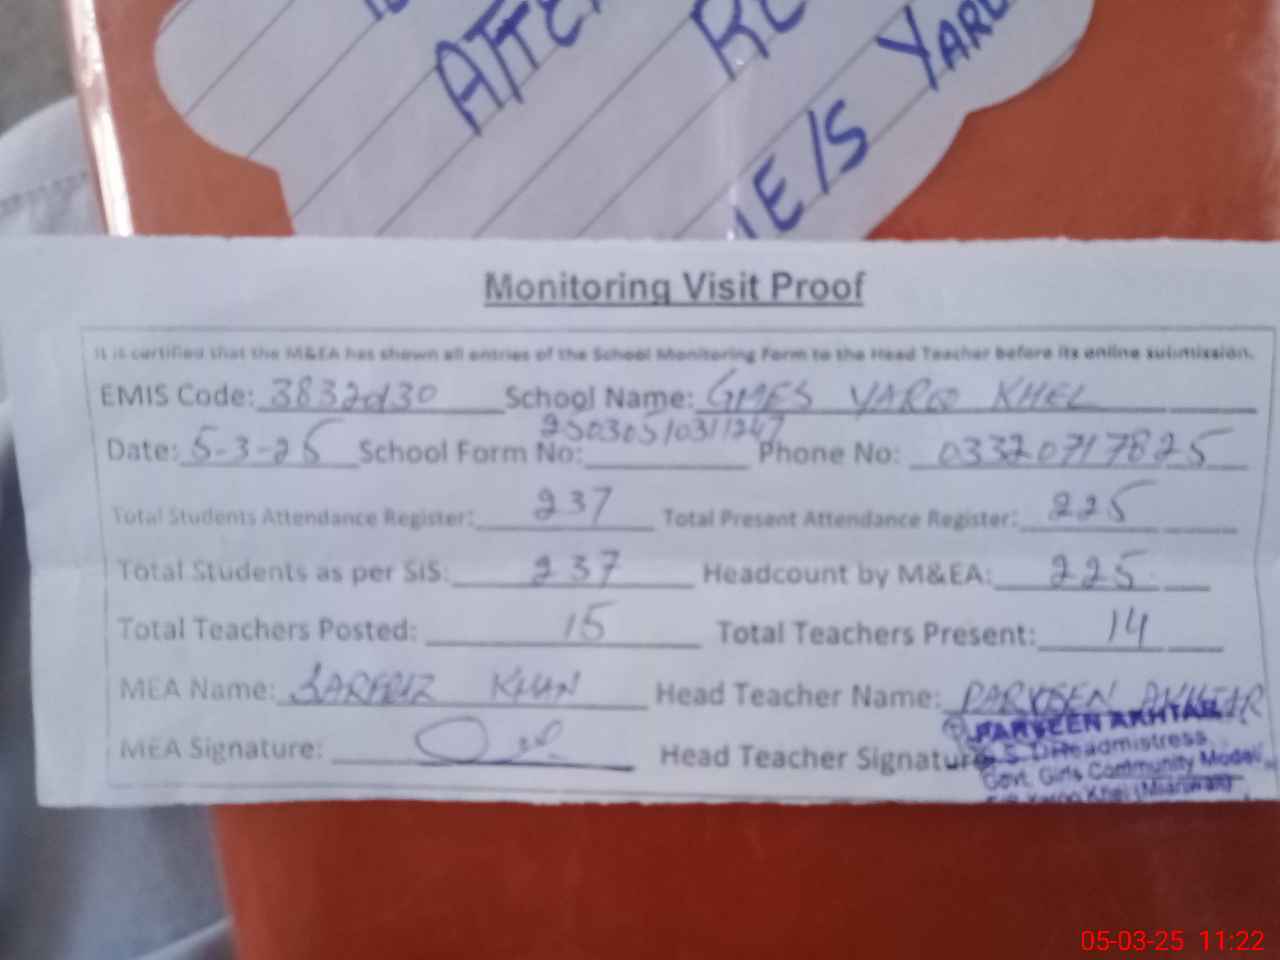 ATTE
RE
E/S YARO
Monitoring Visit Proof
It is certified that the M&EA has shown all entries of the School Monitoring Form to the Head Teacher before its online submission.
EMIS Code: 38320130 School Name: GMES YAROO KHEL
Date: 5-3-25 School Form No: 25030510311247 Phone No: 03320717825
Total Students Attendance Register: 237 Total Present Attendance Register: 225
Total Students as per SIS: 237 Headcount by M&EA: 225
Total Teachers Posted: 15 Total Teachers Present: 14
MEA Name: SARFRAZ KHAN Head Teacher Name: PARVEEN AKHTAR
MEA Signature: Head Teacher Signature
PARVEEN AKHTAR
Headmistress
Govt. Girls Community Model
Yaroo Khel (Mianwali)
05-03-25 11:22